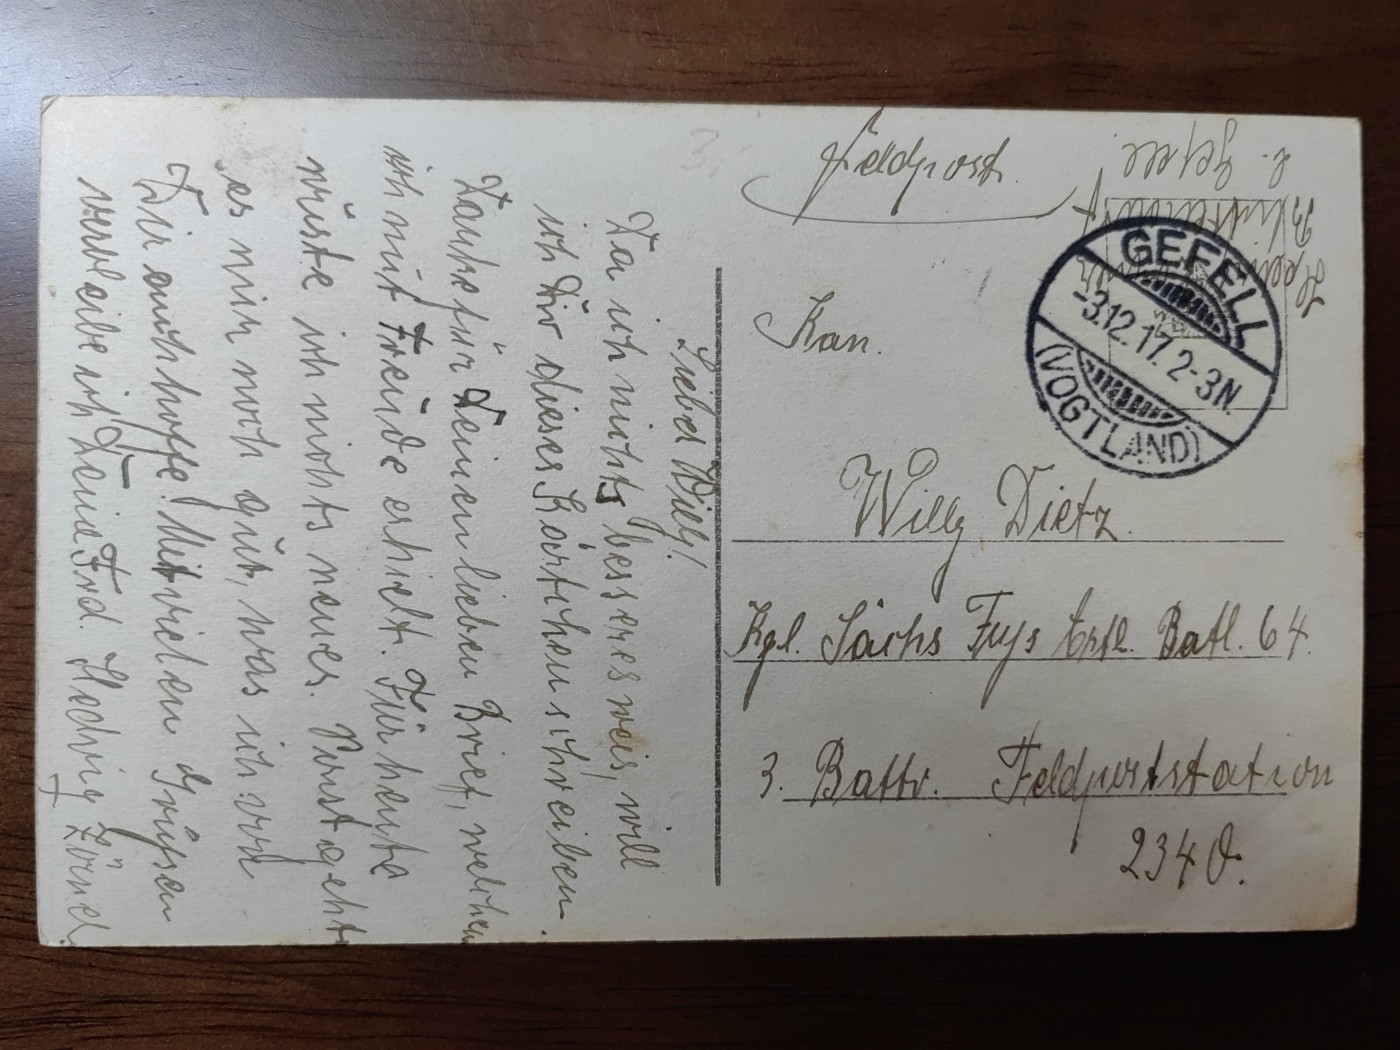 Feldpost.
Kan.
Willy Dietz.
Kgl. Sächs Fuß Artl. Batl. 64.
3. Battr. Feldpoststation
234 O.
GEFELL
-3.12.17. 2-3N.
(VOGTLAND)
Lieber Willy!
Da ich nichts besseres weis, will
ich Dir dieses Kärtchen schreiben.
Danke für Deinen lieben Brief, welchen
ich mit Freude erhielt. Für heute
wüste ich nichts neues. Sonst geht
es mir noch gut, was ich von
Dir auch hoffe. Mit vielen Grüßen
verbleibe ich Deine Frd. Hedwig Zörnel.
3